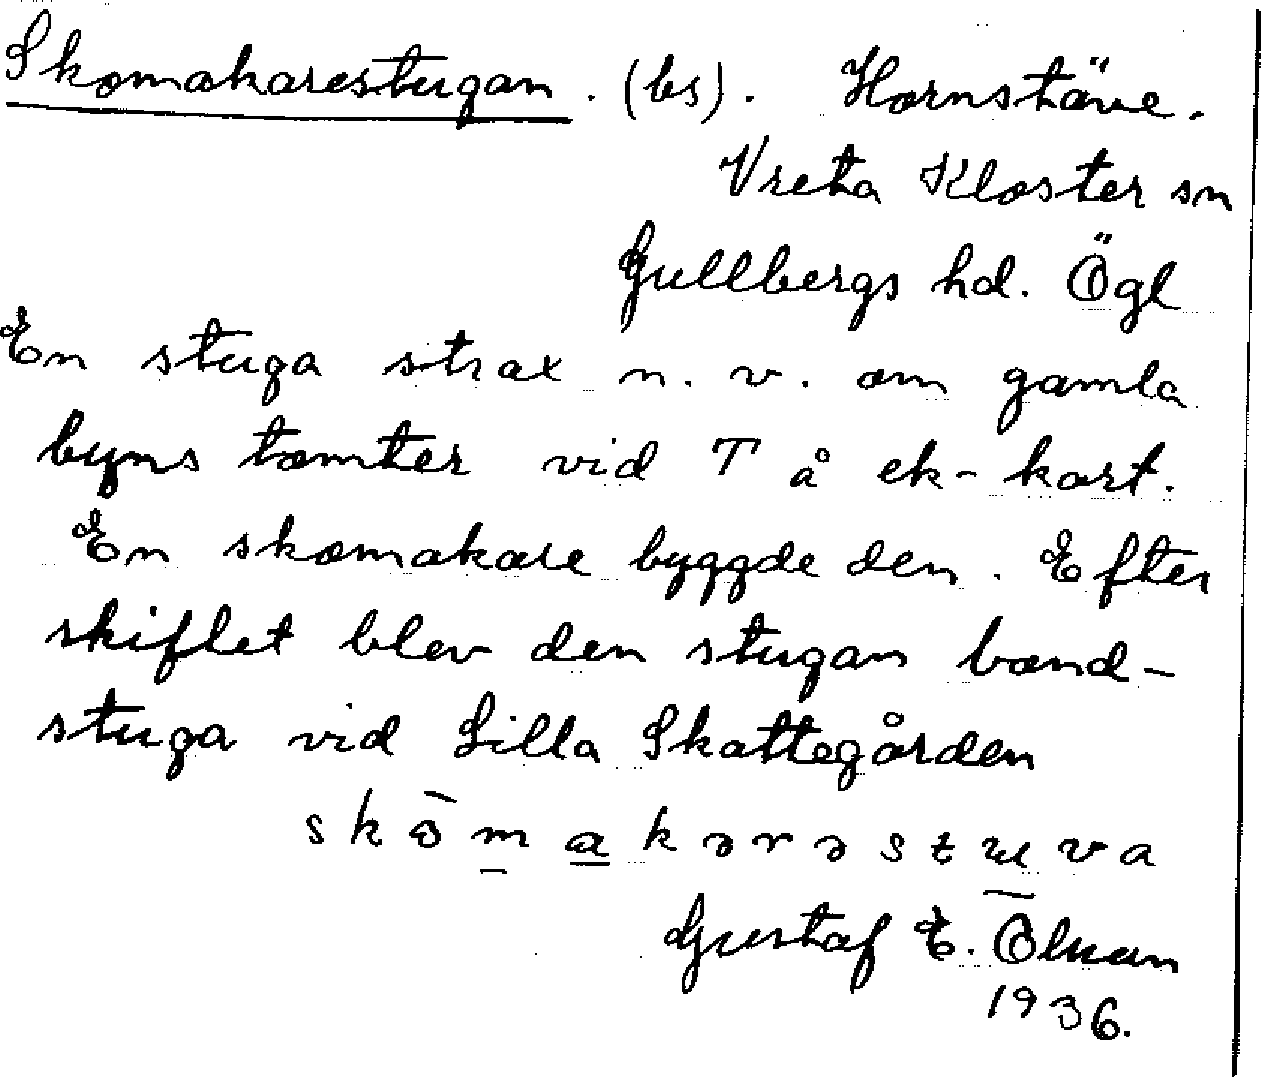 Skomakarestugan. (bs). Hornstäve.
Vreta Kloster sn
Gullbergs hd. Ögl
En stuga strax n. v. om gamla
byns tomter vid T å ek-kart.
En skomakare byggde den. Efter
skiftet blev den stugan band-
stuga vid Lilla Skattegården
Gustaf E.
1936.